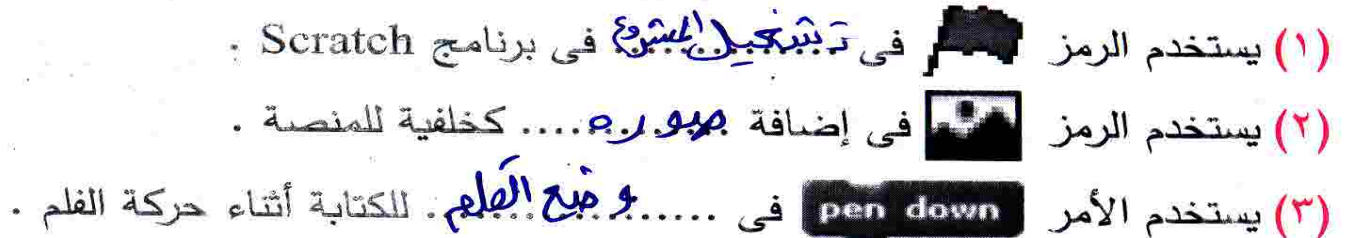 (١) يستخدم الرمز فى تشغيل المشروع فى برنامج Scratch .
(٢) يستخدم الرمز فى إضافة صوره .... كخلفية للمنصة .
(٣) يستخدم الأمر pen down فى ...... وضع القلم . للكتابة أثناء حركة الفلم .